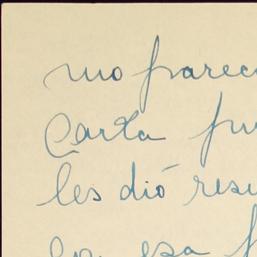 mo parec
Carta fu
les dió resu
en esa f